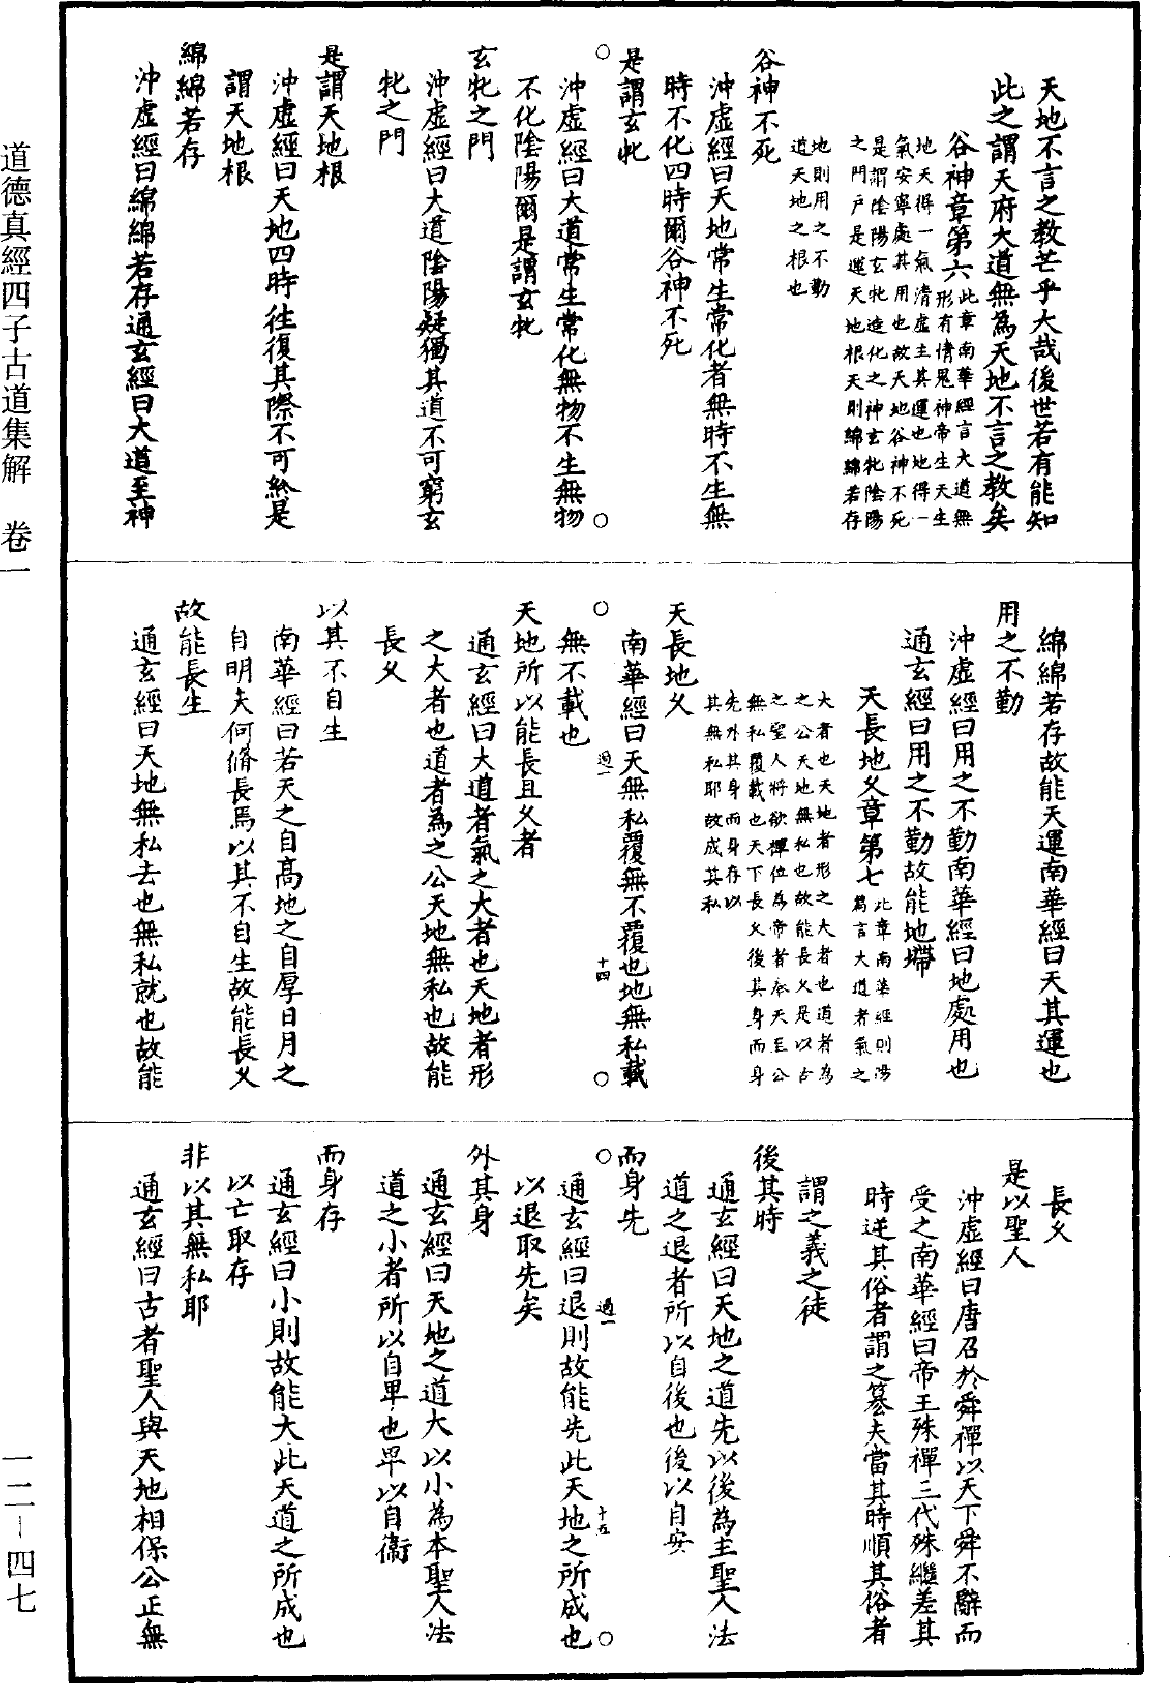 天地不言之教芒乎大哉後世若有能知
此之謂天府大道無為天地不言之教矣
谷神章第六
此章南華經言大道無
形有情鬼神帝生天生
地天得一氣清虛主其運也地得一
氣安寧處其用也故天地谷神不死
是謂陰陽玄牝造化之神玄牝陰陽
之門戶是運天地根天則綿綿若存
地則用之不勤
道天地之根也
谷神不死
沖虛經曰天地常生常化者無時不生無
時不化四時爾谷神不死
是謂玄牝
沖虛經曰大道常生常化無物不生無物
不化陰陽爾是謂玄牝
玄牝之門
沖虛經曰大道陰陽疑獨其道不可窮玄
牝之門
是謂天地根
沖虛經曰天地四時往復其際不可終是
謂天地根
綿綿若存
沖虛經曰綿綿若存通玄經曰大道至神
綿綿若存故能天運南華經曰天其運也
用之不勤
沖虛經曰用之不勤南華經曰地處用也
通玄經曰用之不勤故能地墆
天長地久章第七
此章南華經則湯
篇言大道者氣之
大者也天地者形之大者也道者為
之公天地無私也故能長久是以古
之聖人將欲禪位為帝者奉天至公
無私覆載也天下長久後其身而身
先外其身而身存以
其無私耶故成其私
天長地久
南華經曰天無私覆無不覆也地無私載
無不載也
過一
十四
天地所以能長且久者
通玄經曰大道者氣之大者也天地者形
之大者也道者為之公天地無私也故能
長久
以其不自生
南華經曰若天之自高地之自厚日月之
自明夫何脩長焉以其不自生故能長久
故能長生
通玄經曰天地無私去也無私就也故能
長久
是以聖人
沖虛經曰唐召於舜禪以天下舜不辭而
受之南華經曰帝王殊禪三代殊繼差其
時逆其俗者謂之篡夫當其時順其俗者
謂之義之徒
後其時
通玄經曰天地之道先以後為主聖人法
道之退者所以自後也後以自安
而身先
通玄經曰退則故能先此天地之所成也
過一
十五
以退取先矣
外其身
通玄經曰天地之道大以小為本聖人法
道之小者所以自卑也卑以自衞
而身存
通玄經曰小則故能大此天道之所成也
以亡取存
非以其無私耶
通玄經曰古者聖人與天地相保公正無
道德真經四子古道集解 卷一
一二－四七